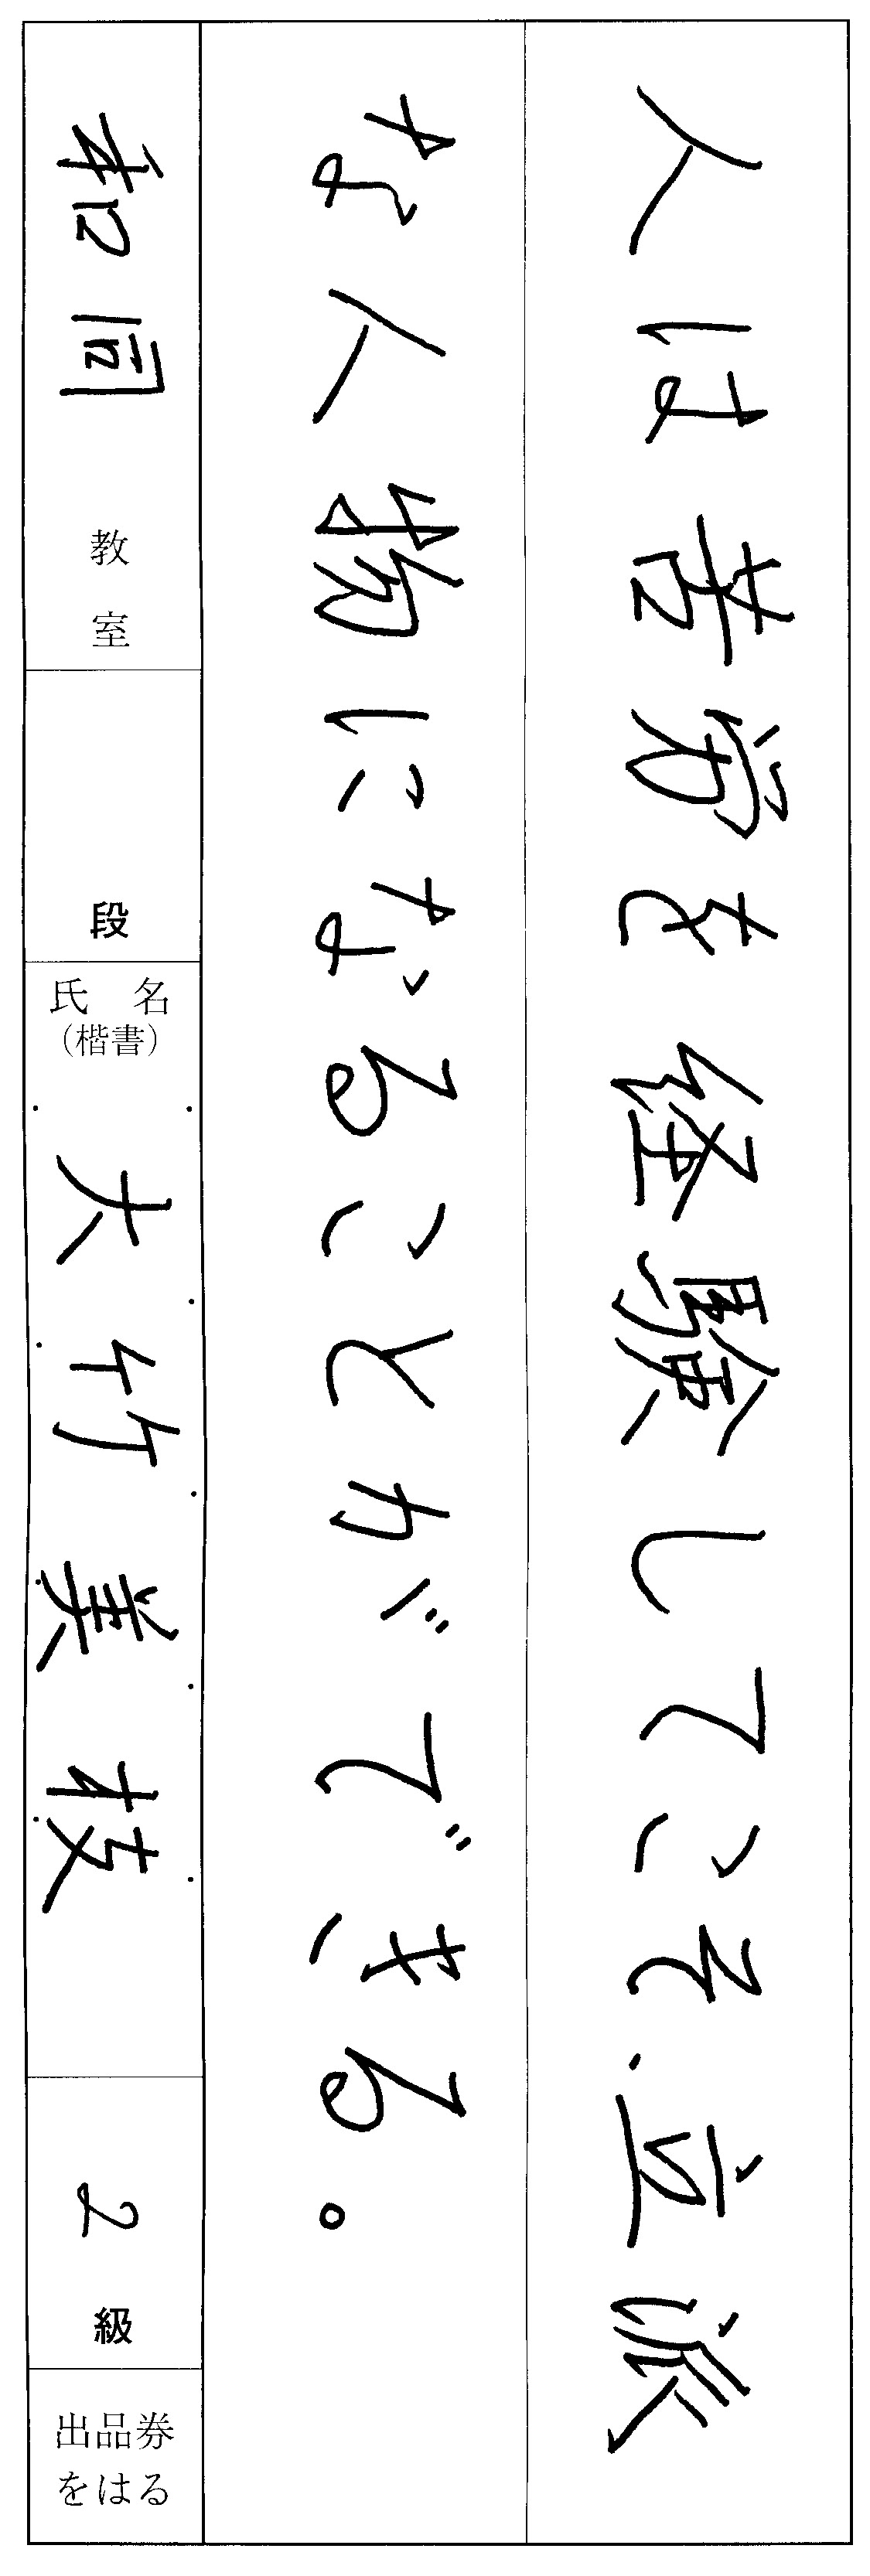 人は苦労を経験してこそ、立派
な人物になることができる。
和同 教室
段
氏名
（楷書）
大竹美枝
2 級
出品券
をはる